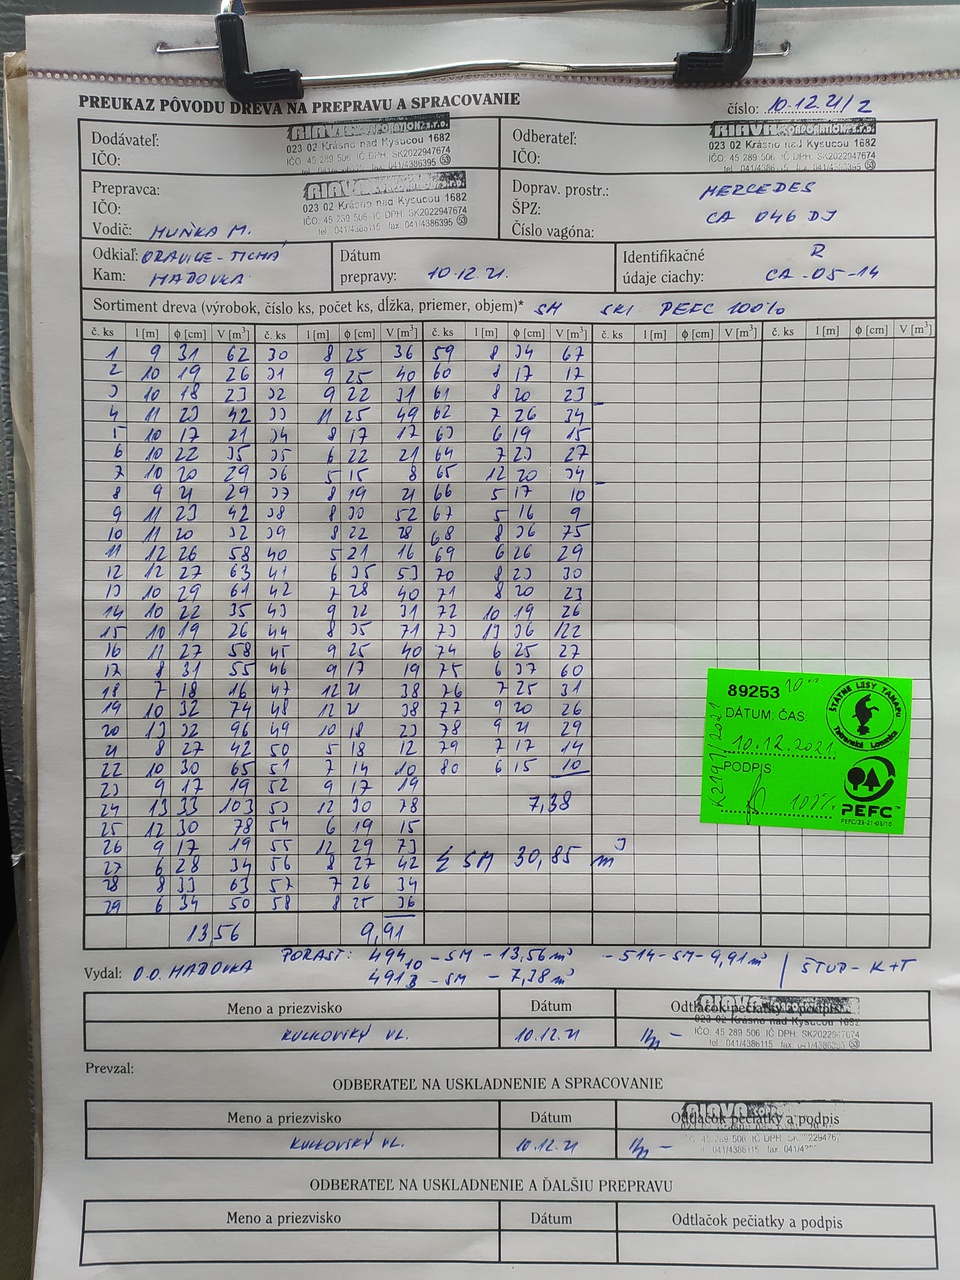 PREUKAZ PÔVODU DREVA NA PREPRAVU A SPRACOVANIE
číslo: 10.12.21/2
Dodávateľ:
IČO:
RIAVA CORPORATION s.r.o.
023 02 Krásno nad Kysucou 1682
IČO: 45 289 506 IČ DPH: SK2022947674
Odberateľ:
IČO:
RIAVA CORPORATION s.r.o.
023 02 Krásno nad Kysucou 1682
IČO: 45 289 506 IČ DPH: SK2022947674
tel.: 041/4386115 fax: 041/4386395 53
Prepravca:
IČO:
Vodič: MUŇKA M.
023 02 Krásno nad Kysucou 1682
IČO: 45 289 506 IČ DPH: SK2022947674
tel.: 041/4386115 fax: 041/4386395 53
Doprav. prostr.: MERCEDES
ŠPZ: CA 046 DJ
Číslo vagóna:
Odkiaľ: ORAVICE - TICHÁ
Kam: HABOVKA
Dátum
prepravy: 10.12.21.
Identifikačné R
údaje ciachy: CA -05-14
Sortiment dreva (výrobok, číslo ks, počet ks, dĺžka, priemer, objem)* SM SKI PEFC 100%
č. ks l [m] ϕ [cm] V [m³] č. ks l [m] ϕ [cm] V [m³] č. ks l [m] ϕ [cm] V [m³] č. ks l [m] ϕ [cm] V [m³] č. ks l [m] ϕ [cm] V [m³]
1 9 31 62 30 8 25 36 59 8 34 67
2 10 19 26 31 9 25 40 60 8 17 17
3 10 18 23 32 9 22 31 61 8 20 23
4 11 23 42 33 11 25 49 62 7 26 34
5 10 17 21 34 8 17 17 63 6 19 15
6 10 22 35 35 6 22 21 64 7 23 27
7 10 20 29 36 5 15 8 65 12 20 34
8 9 21 29 37 8 19 21 66 5 17 10
9 11 23 42 38 8 30 52 67 5 16 9
10 11 20 32 39 8 22 28 68 8 36 75
11 12 26 58 40 5 21 16 69 6 26 29
12 12 27 63 41 6 35 53 70 8 23 30
13 10 29 61 42 7 28 40 71 8 20 23
14 10 22 35 43 9 22 31 72 10 19 26
15 10 19 26 44 8 35 71 73 13 36 122
16 11 27 58 45 9 25 40 74 6 25 27
17 8 31 55 46 9 17 19 75 6 37 60
18 7 18 16 47 12 21 38 76 7 25 31
19 10 32 74 48 12 21 38 77 9 20 26
20 13 32 96 49 10 18 23 78 9 21 29
21 8 27 42 50 5 18 12 79 7 17 14
22 10 30 65 51 7 14 10 80 6 15 10
23 9 17 19 52 9 17 19
24 13 33 103 53 12 30 78 7,38
25 12 30 78 54 6 19 15
26 9 17 19 55 12 29 73
27 6 28 34 56 8 27 42 Σ SM 30,85 m³
28 8 33 63 57 7 26 34
29 6 34 50 58 8 25 36
13,56 9,91
89253
DÁTUM, ČAS:
10.12.2021
PODPIS
100%
ŠTÁTNE LESY TANAPu
Tatranská Lomnica
PEFC™
PEFC/23-21-03/10
Vydal: O.O. HABOVKA
PORAST: 494 10 - SM - 13,56 m³ - 514 - SM - 9,91 m³ / ŠTUD - K+T
491 B - SM - 7,38 m³
Meno a priezvisko Dátum Odtlačok pečiatky a podpis
KULKOVSKÝ VL. 10.12.21
023 02 Krásno nad Kysucou 1682
IČO: 45 289 506 IČ DPH: SK2022947674
tel.: 041/4386115 fax: 041/4386395 53
Prevzal:
ODBERATEĽ NA USKLADNENIE A SPRACOVANIE
Meno a priezvisko Dátum Odtlačok pečiatky a podpis
KULKOVSKÝ VL. 10.12.21
ODBERATEĽ NA USKLADNENIE A ĎALŠIU PREPRAVU
Meno a priezvisko Dátum Odtlačok pečiatky a podpis